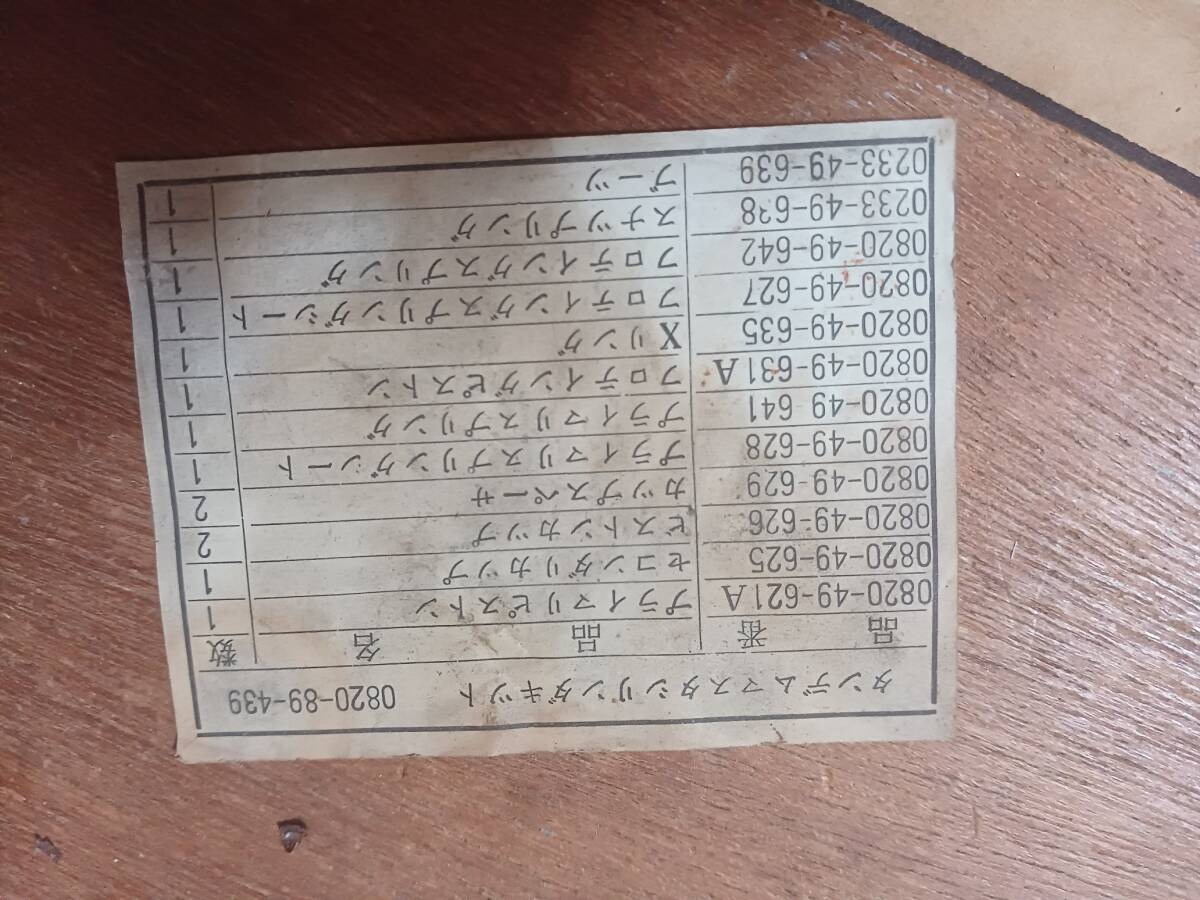 タンデムマスタシリンダキット 0820-89-439
品番 品名 数
0820-49-621A プライマリピストン 1
0820-49-625 セコンダリカップ 1
0820-49-626 ピストンカップ 2
0820-49-629 カップスペーサ 2
0820-49-628 プライマリスプリングシート 1
0820-49-641 プライマリスプリング 1
0820-49-631A フロティングピストン 1
0820-49-635 Xリング 1
0820-49-627 フロティングスプリングシート 1
0820-49-642 フロティングスプリング 1
0233-49-638 スナップリング 1
0233-49-639 ブーツ 1